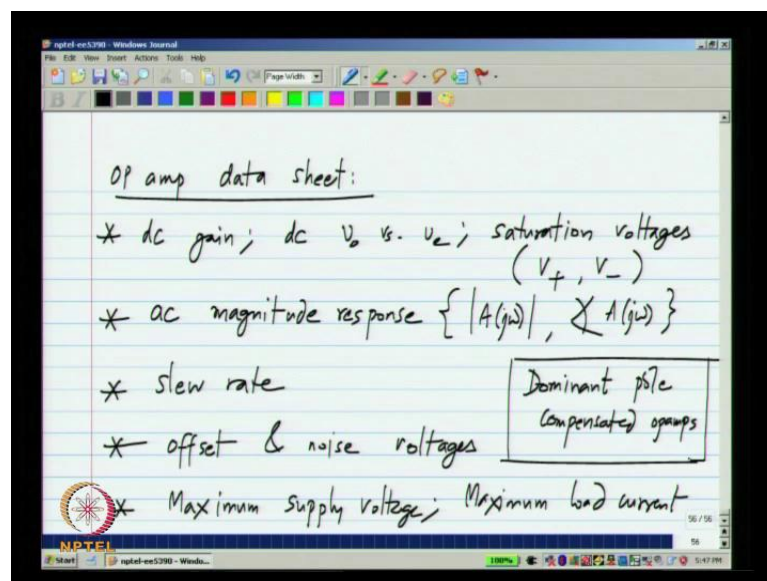 nptel-ee5390 - Windows Journal
File Edit View Insert Actions Tools Help
Page Width
B I
OP amp data sheet:
* dc gain; dc Vo vs. ve; saturation voltages
(V+, V-)
* ac magnitude response { |A(jω)|, ∠A(jω) }
* Slew rate
Dominant pole
Compensated opamps
* offset & noise voltages
* Maximum supply voltage; Maximum load current
56 / 56
56
NPTEL
Start
nptel-ee5390 - Windo...
100%
5:47 PM